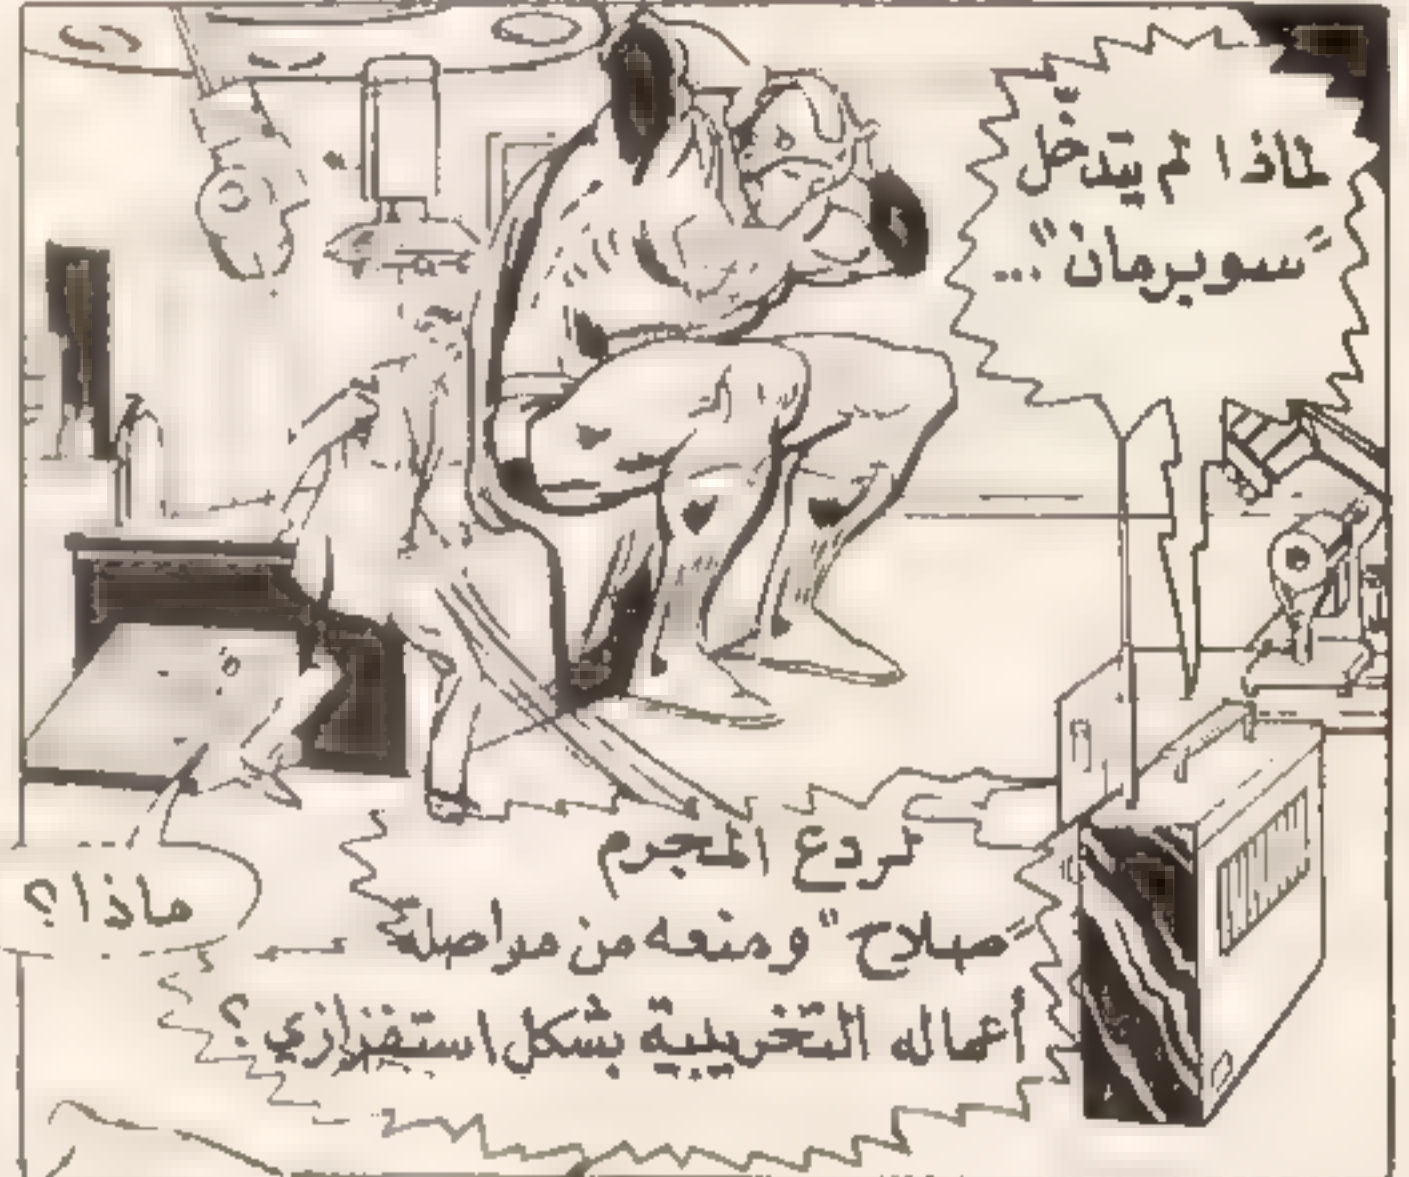 لماذا لم يتدخّل
"سوبرمان"...
لردع المجرم
"صلاح" ومنعه من مواصلة
أعماله التخريبية بشكل استفزازي؟
ماذا؟